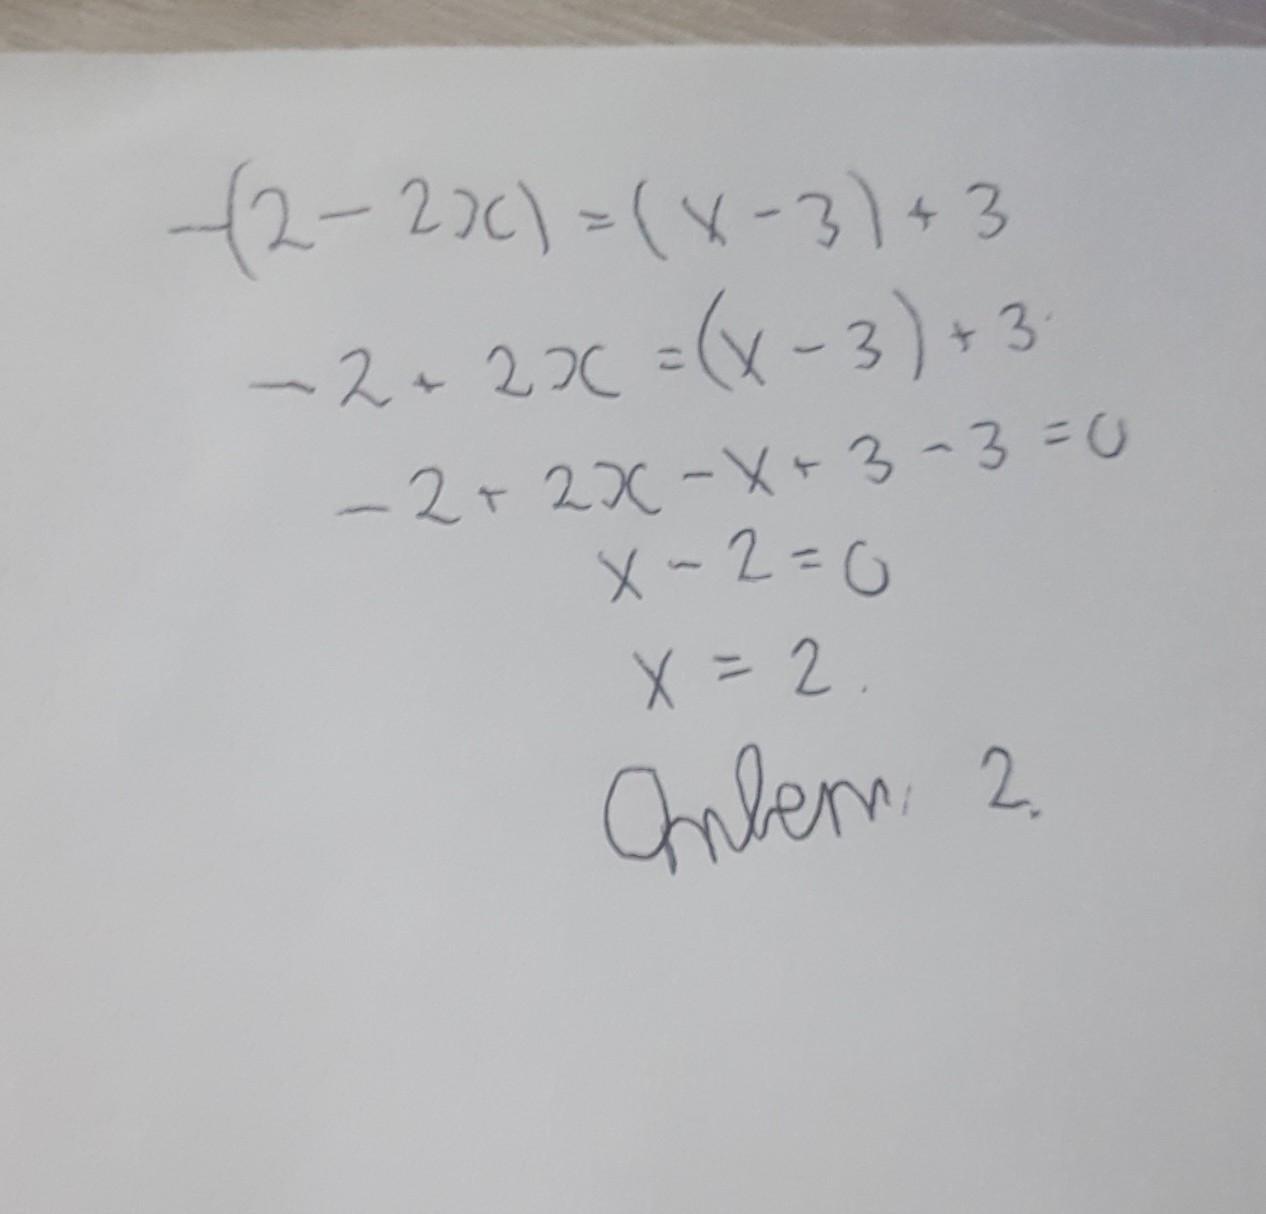 -(2-2x)=(x-3)+3
-2+2x=(x-3)+3
-2+2x-x+3-3=0
x-2=0
x=2.
Ответ: 2.